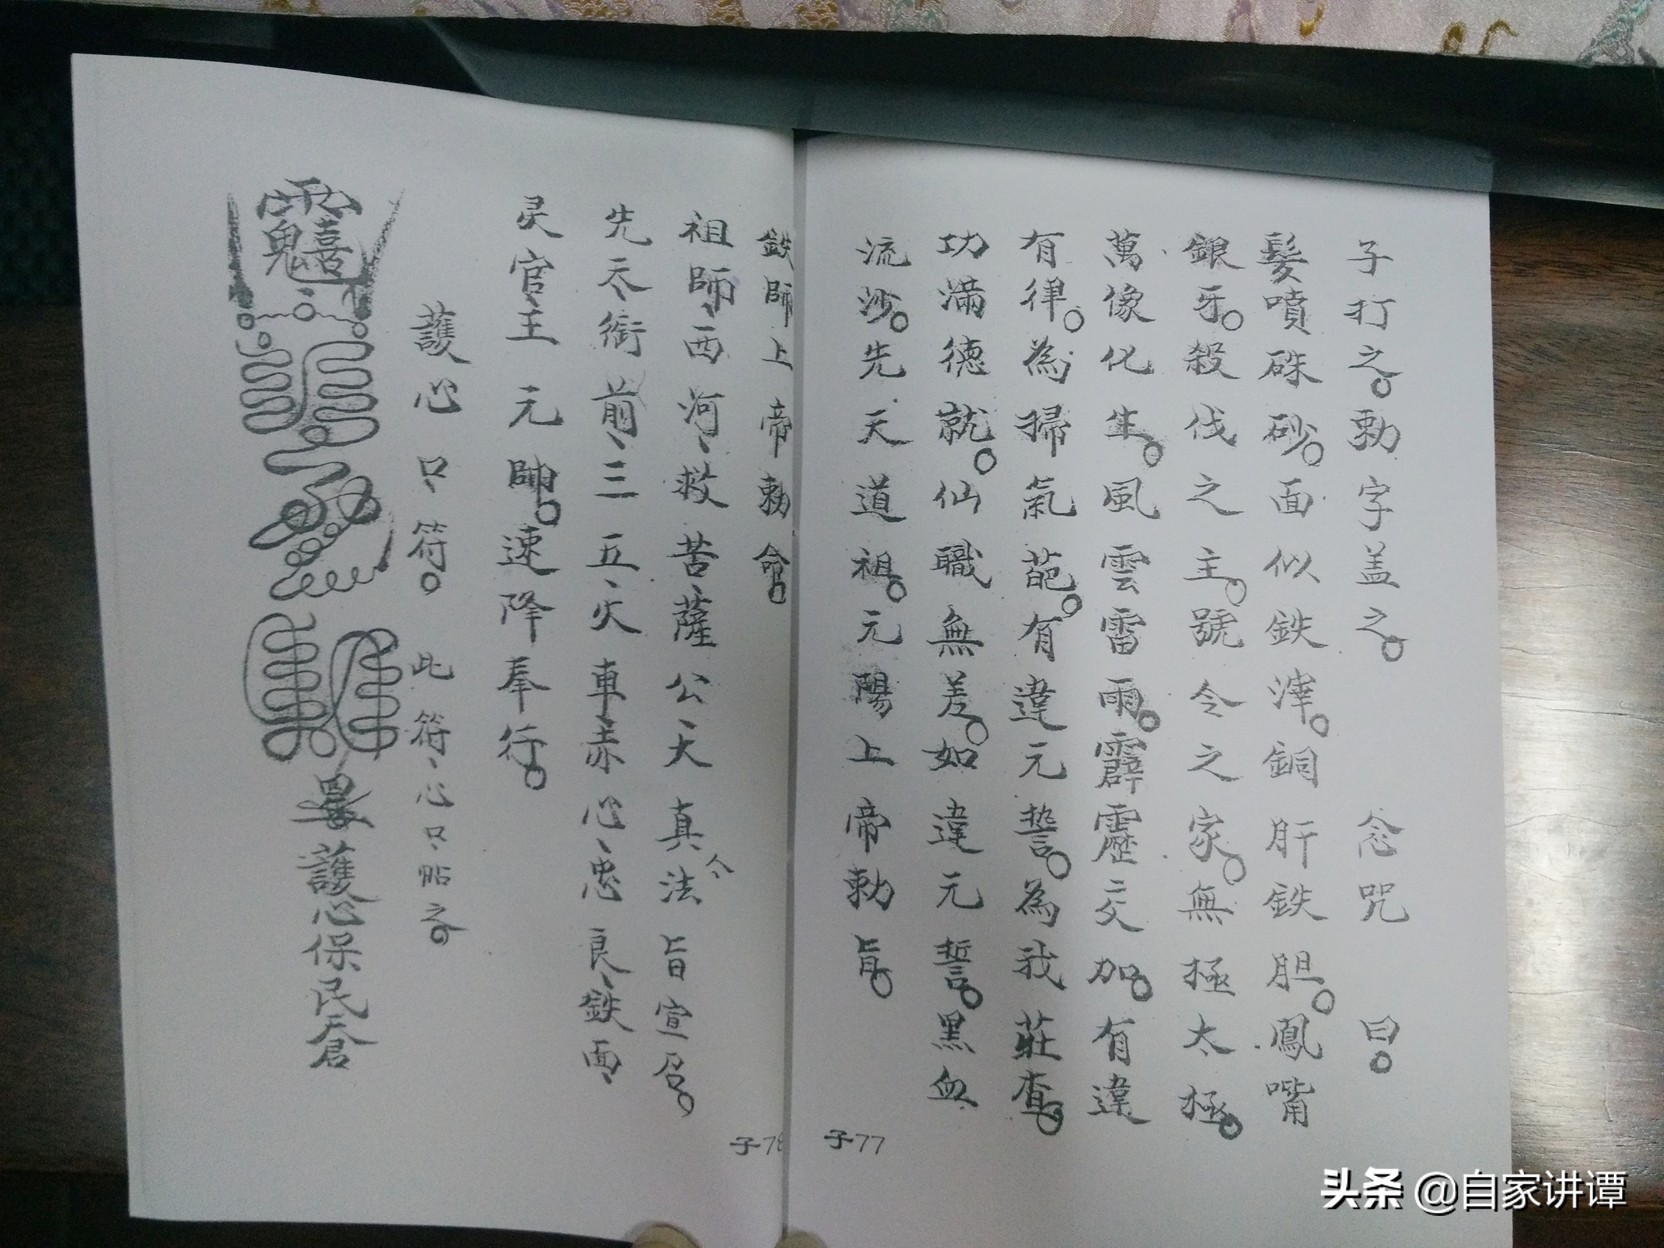 子打之。勅字盖之。 念咒曰。
髮噴硃砂。面似鉄滓。銅肝鉄胆。鳳嘴
銀牙。殺伐之主。號令之家。無極太極。
萬像化生。風雲雷雨。霹靂交加。有違
有律。為掃氣葩。有違元誓。為我莊查。
功滿德就。仙職無差。如違元誓。黑血
流沙。先天道祖。元陽上帝勅旨。
鉄師上帝勅命。
祖師、西河、救苦薩公、天真法旨宣召。
先天、衙前、三五、火車、赤心、忠良、鉄面、
灵官、王元帥。速降奉行。
護心口符。此符、心口帖之。
護心保民倉
子77
子78
头条 @自家讲谭